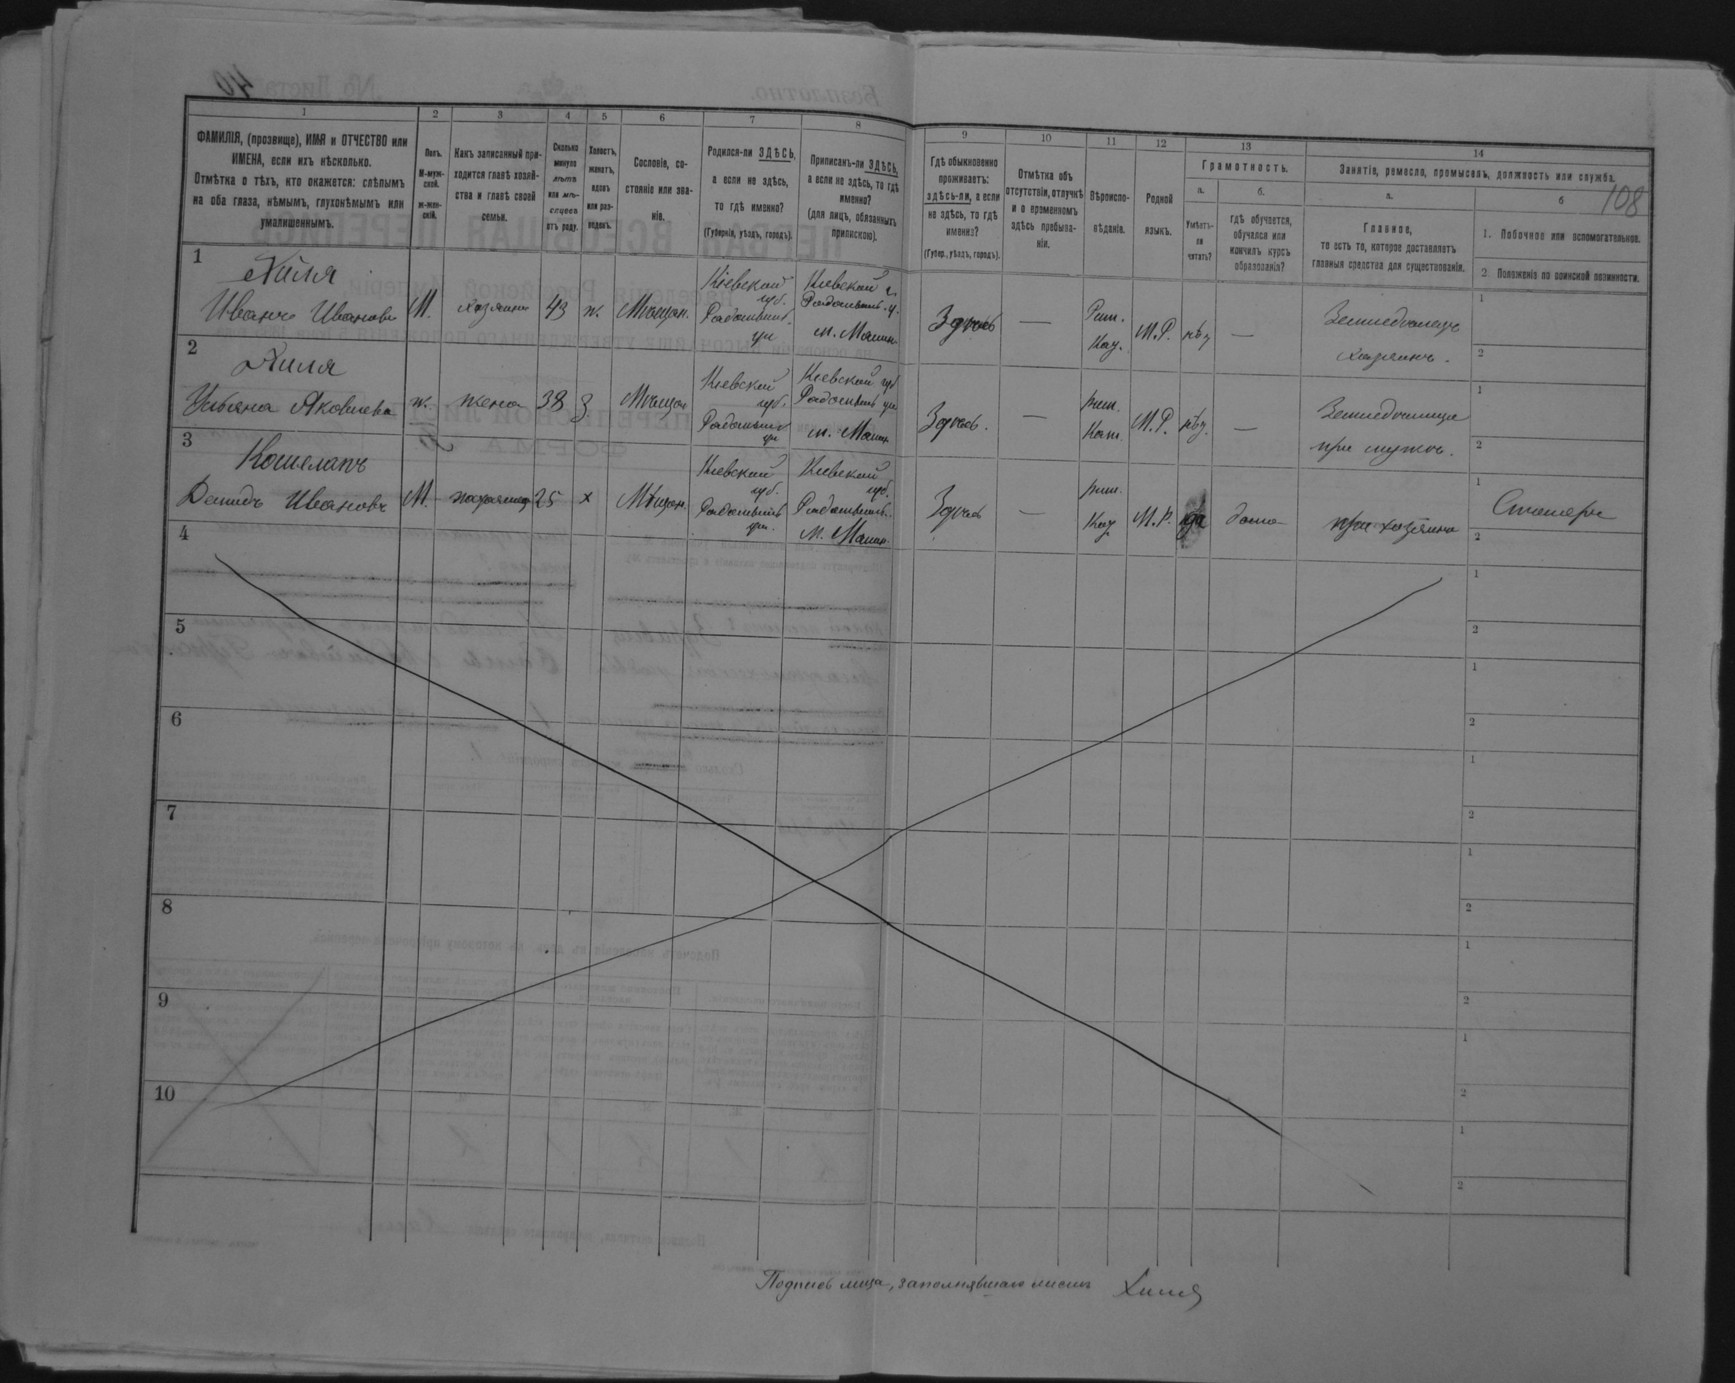 108
1 2 3 4 5 6 7 8 9 10 11 12 13 14
ФАМИЛІЯ, (прозвище), ИМЯ и ОТЧЕСТВО или
ИМЕНА, если ихъ нѣсколько.
Отмѣтка о тѣхъ, кто окажется: слѣпымъ
на оба глаза, нѣмымъ, глухонѣмымъ или
умалишеннымъ.
Полъ.
М-муж-
ской.
ж-жен-
скій.
Какъ записанный при-
ходится главѣ хозяй-
ства и главѣ своей
семьи.
Сколько
минуло
лѣтъ
или мѣ-
сяцевъ
отъ роду.
Холостъ,
женатъ,
вдовъ
или раз-
веденъ.
Сословіе, со-
стояніе или зва-
ніе.
Родился-ли ЗДѢСЬ,
а если не здѣсь,
то гдѣ именно?
(Губернія, уѣздъ, городъ).
Приписанъ-ли ЗДѢСЬ,
а если не здѣсь, то гдѣ
именно?
(для лицъ, обязанныхъ
припискою).
Гдѣ обыкновенно
проживаетъ:
здѣсь-ли, а если
не здѣсь, то гдѣ
именно?
(Губер., уѣздъ, городъ).
Отмѣтка объ
отсутствіи, отлучкѣ
и о временномъ
здѣсь пребыва-
ніи.
Вѣроиспо-
вѣданіе.
Родной
языкъ.
Грамотность.
а.
Умѣетъ-
ли
читать?
б.
гдѣ обучается,
обучался или
кончилъ курсъ
образованія?
Занятія, ремесло, промыселъ, должность или служба.
а.
Главное,
то есть то, которое доставляетъ
главныя средства для существованія.
б
1. Побочное или вспомогательное.
2. Положеніе по воинской повинности.
1
Хиля
Иванъ Ивановъ
М.
хозяинъ
43
ж.
Мѣщан.
Кіевской
губ.
Радомысл.
уѣ
Кіевской г.
Радомысл. у.
м. Малин.
Здѣсь
—
Рим.
Кат.
М.Р.
нѣт
—
Земледѣлецъ
хозяинъ.
1
2
2
Хиля
Ульяна Яковлева
ж.
жена
38
З
Мѣщан
Кіевской
губ.
Радомысл
уѣ
Кіевской губ
Радомысл уѣ
м. Малин.
Здѣсь.
—
рим.
Кат.
М.Р.
нѣт.
—
Земледѣлица
при мужѣ.
1
2
3
Демидъ Ивановъ
М.
25
х
Мѣщан.
Кіевской
губ.
Радомысл
уѣ.
Кіевской
губ.
Радомысл.
м. Малин.
Здѣсь
—
рим.
Кат
М.Р.
да
дома
при хозяинѣ
1
Столяръ
2
4
1
2
5
1
2
6
1
2
7
1
2
8
1
2
9
1
2
10
1
2
Подпись лица, заполнявшаго листъ Хиля